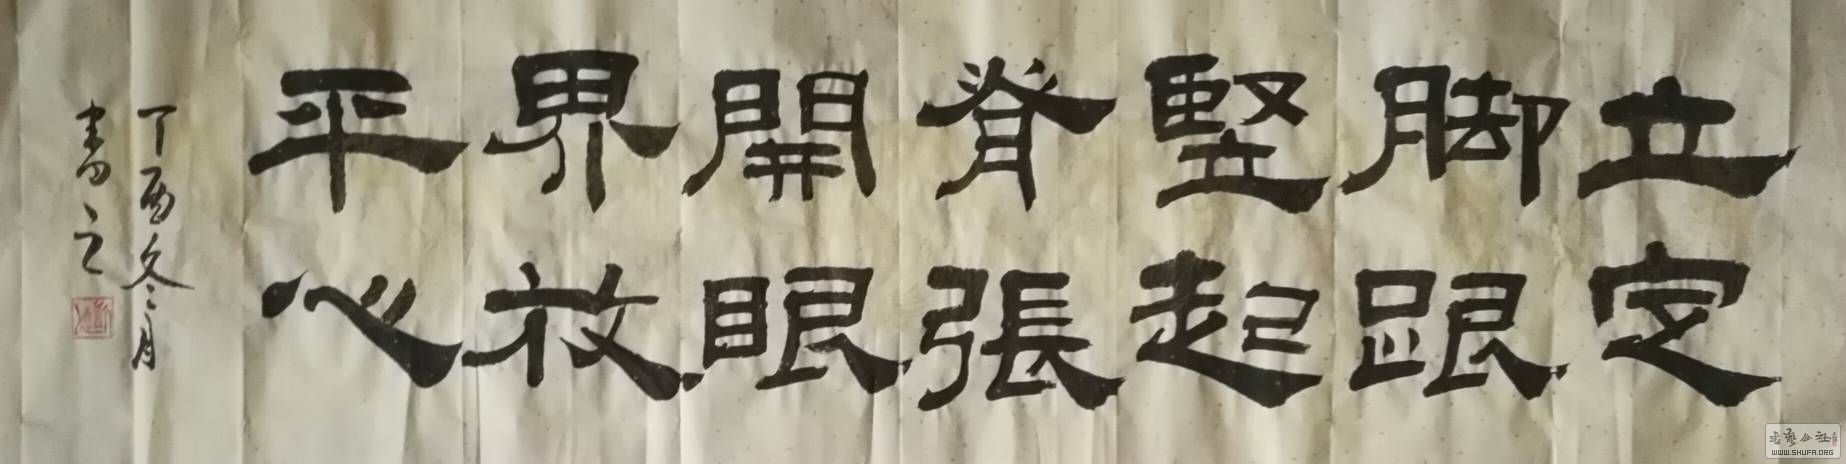 立定
脚跟
竪起
脊張
開眼
界放
平心
丁酉冬月
書之
書藝公社
WWW.SHUFA.ORG